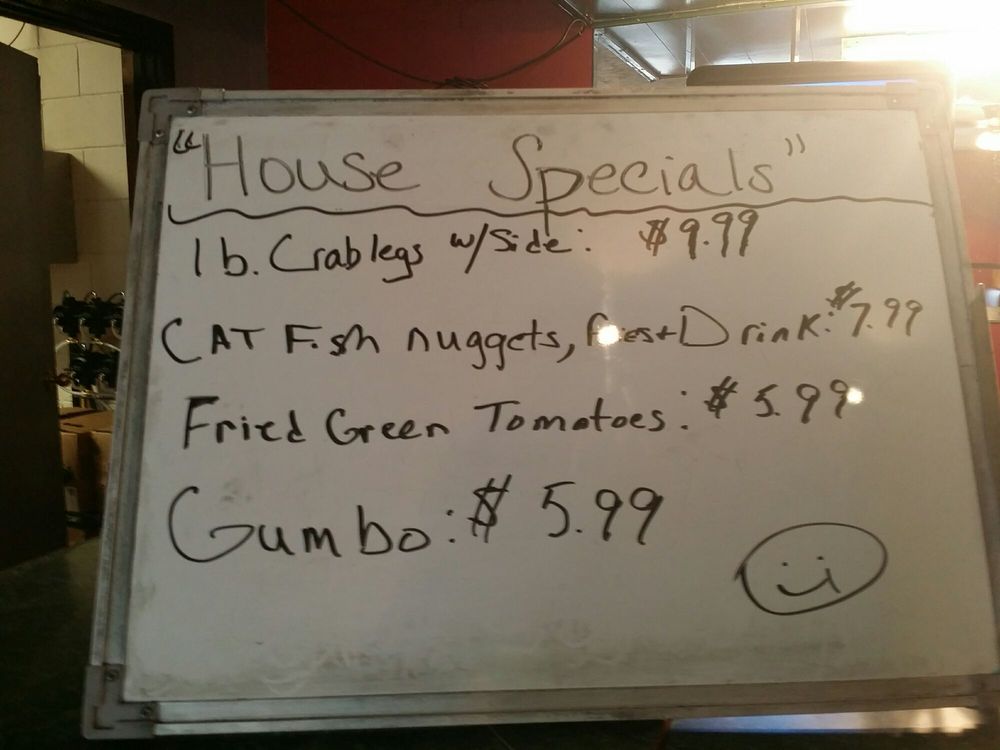 "House Specials"
1 lb. Crab legs w/Side: $9.99
CAT Fish nuggets, fries + Drink: $7.99
Fried Green Tomatoes: $5.99
Gumbo: $5.99